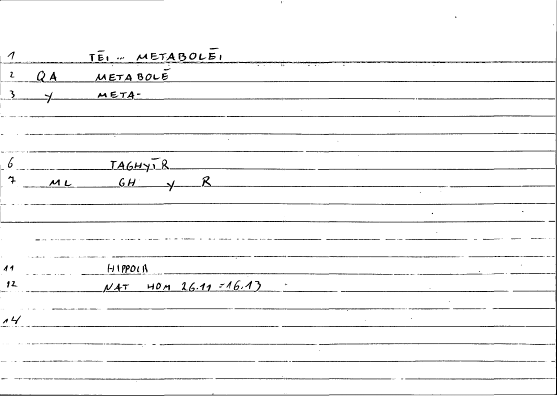 1 TĒI ... METABOLĒI
2 QA METABOLĒ
3 y META-
6 TAGHYĪR
7 ML GH y R
11
12 NAT HOM 26.11 = 16.13
14